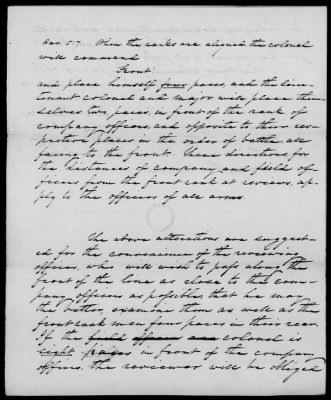 Par. 57. When the ranks are aligned the colonel
will command
Front!
and place himself four paces, and the lieu-
tenant colonel and major will place them-
selves two paces, in front of the rank of
company officers, and opposite to their res-
pective places in the order of battle, all
facing to the front. These directions for
the distances of company and field of-
ficers from the front rank at reviews, ap-
ply to the officers of all arms.
The above alterations are suggest-
ed for the convenience of the reviewing
officer, who will wish to pass along the
front of the line as close to the com-
pany officers as possible that he may
the better, examine them as well as the
front rank men four paces in their rear.
If the field officers are colonel is
eight paces in front of the company
officers. The reviewer will be obliged